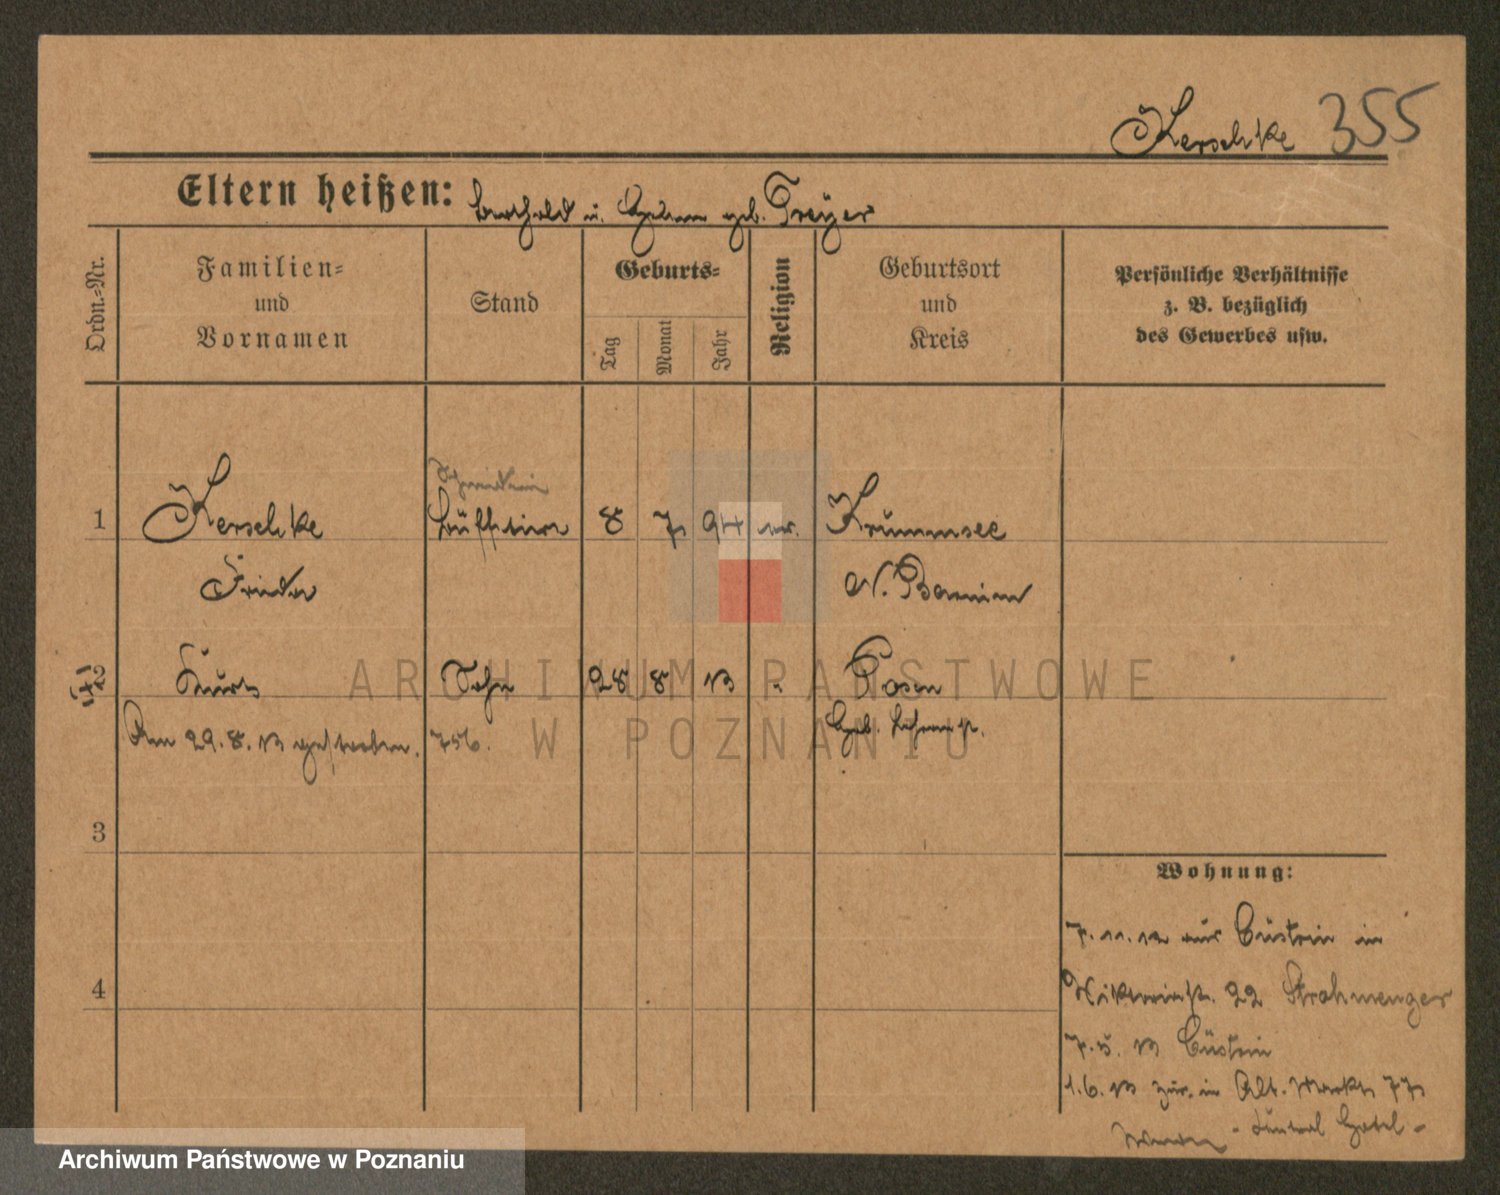 Kerschke 355
Eltern heißen: Berthold u. geb. Freyer
Ordn.-Nr.
Familien-
und
Vornamen
Stand
Geburts-
Tag
Monat
Jahr
Religion
Geburtsort
und
Kreis
Persönliche Verhältnisse
z. B. bezüglich
des Gewerbes usw.
1 Kerschke 8 7 94 ev. Krummsee
Frieda N. Barnim
2 Kurt Sohn 28 8 13 " Posen
Am 29.8.13 gestorben. 756. Geb.
3
4
Wohnung:
7.11.12 aus Cüstrin in
Viktoriastr. 22 Strohmenger
7.5.13 Cüstrin
1.6.13 zur. in Alt. Markt 77
Hotel -
ARCHIWUM PAŃSTWOWE
W POZNANIU
Archiwum Państwowe w Poznaniu